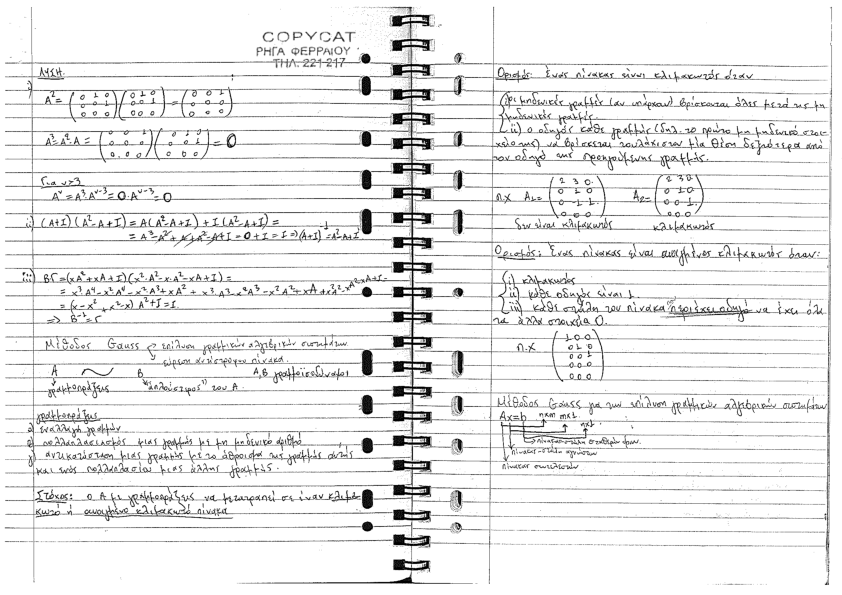 COPYCAT
ΡΗΓΑ ΦΕΡΡΑΙΟΥ
ΤΗΛ. 221-217
ΛΥΣΗ
i)
A² = (0 1 0 / 0 0 1 / 0 0 0) (0 1 0 / 0 0 1 / 0 0 0) = (0 0 1 / 0 0 0 / 0 0 0)
A³ = A²·A = (0 0 1 / 0 0 0 / 0 0 0) (0 1 0 / 0 0 1 / 0 0 0) = 0
Για ν>3
Aᵛ = A³·Aᵛ⁻³ = 0·Aᵛ⁻³ = 0
ii) (A+I)(A²-A+I) = A(A²-A+I) + I(A²-A+I) =
= A³-A²+A+A²-A+I = 0+I = I ⇒ (A+I)⁻¹ = A²-A+I
iii) ΒΓ = (xA²+xA+I)(x²·A²-x·A²-xA+I) =
= (x-x²+x²-x)A²+I = I
⇒ B⁻¹ = Γ
Μέθοδος Gauss επίλυση γραμμικών αλγεβρικών συστημάτων
εύρεση αντίστροφου πίνακα.
A ~ B A,B γραμμοϊσοδύναμοι
γραμμοπράξεις "απλούστερος" του A.
γραμμοπράξεις
α) εναλλαγή γραμμών
β) πολλαπλασιασμός μιας γραμμής με μη μηδενικό αριθμό
γ) αντικατάσταση μιας γραμμής με το άθροισμα της γραμμής αυτής
και ενός πολλαπλασίου μιας άλλης γραμμής.
Στόχος: ο A με γραμμοπράξεις να μετατραπεί σε έναν κλιμα-
κωτό ή ανηγμένο κλιμακωτό πίνακα
Ορισμός: Ένας πίνακας είναι κλιμακωτός όταν
i) οι μηδενικές γραμμές (αν υπάρχουν) βρίσκονται όλες μετά τις μη
μηδενικές γραμμές.
ii) ο οδηγός κάθε γραμμής (δηλ. το πρώτο μη μηδενικό στοι-
χείο της) να βρίσκεται τουλάχιστον μία θέση δεξιότερα από
τον οδηγό της προηγούμενης γραμμής.
π.χ A₁ = (2 3 0 / 0 1 0 / 0 -1 1 / 0 0 0) A₂ = (2 3 0 / 0 1 0 / 0 0 0 / 0 0 0)
δεν είναι κλιμακωτός κλιμακωτός
Ορισμός: Ένας πίνακας είναι ανηγμένος κλιμακωτός όταν:
i) κλιμακωτός
ii) κάθε οδηγός είναι 1.
iii) κάθε στήλη του πίνακα που περιέχει οδηγό να έχει όλα
τα άλλα στοιχεία 0.
π.χ (1 0 0 / 0 1 0 / 0 0 1 / 0 0 0 / 0 0 0)
Μέθοδος Gauss για την επίλυση γραμμικών αλγεβρικών συστημάτων
Ax=b n×m m×1
n×1
πίνακας-στήλη σταθερών όρων
πίνακας-στήλη αγνώστων
πίνακας συντελεστών